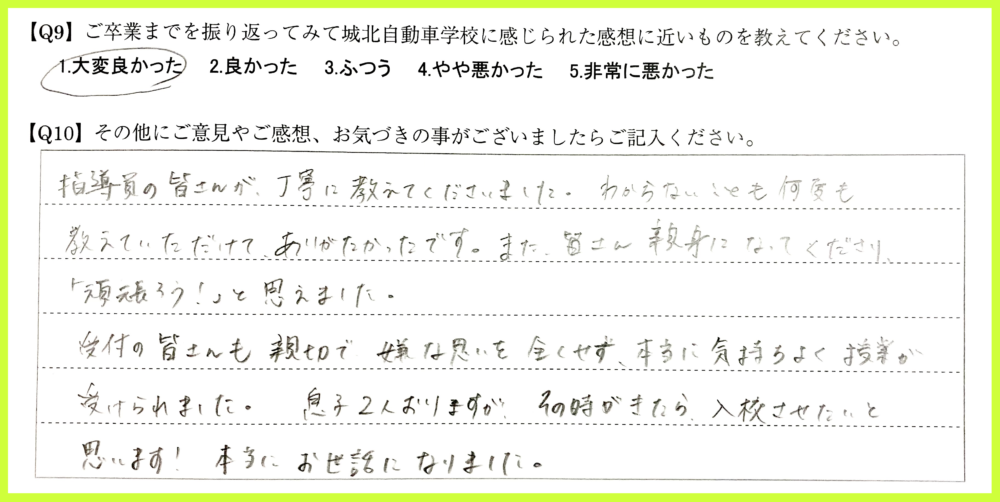 【Q9】ご卒業までを振り返ってみて城北自動車学校に感じられた感想に近いものを教えてください。
1.大変良かった 2.良かった 3.ふつう 4.やや悪かった 5.非常に悪かった
【Q10】その他にご意見やご感想、お気づきの事がございましたらご記入ください。
指導員の皆さんが、丁寧に教えてくださいました。わからないことも何度も
教えていただけて、ありがたかったです。また、皆さん親身になってくださり、
「頑張ろう!」と思えました。
受付の皆さんも親切で、嫌な思いを全くせず、本当に気持ちよく授業が
受けられました。 息子2人おりますが、その時がきたら、入校させたいと
思います! 本当にお世話になりました。